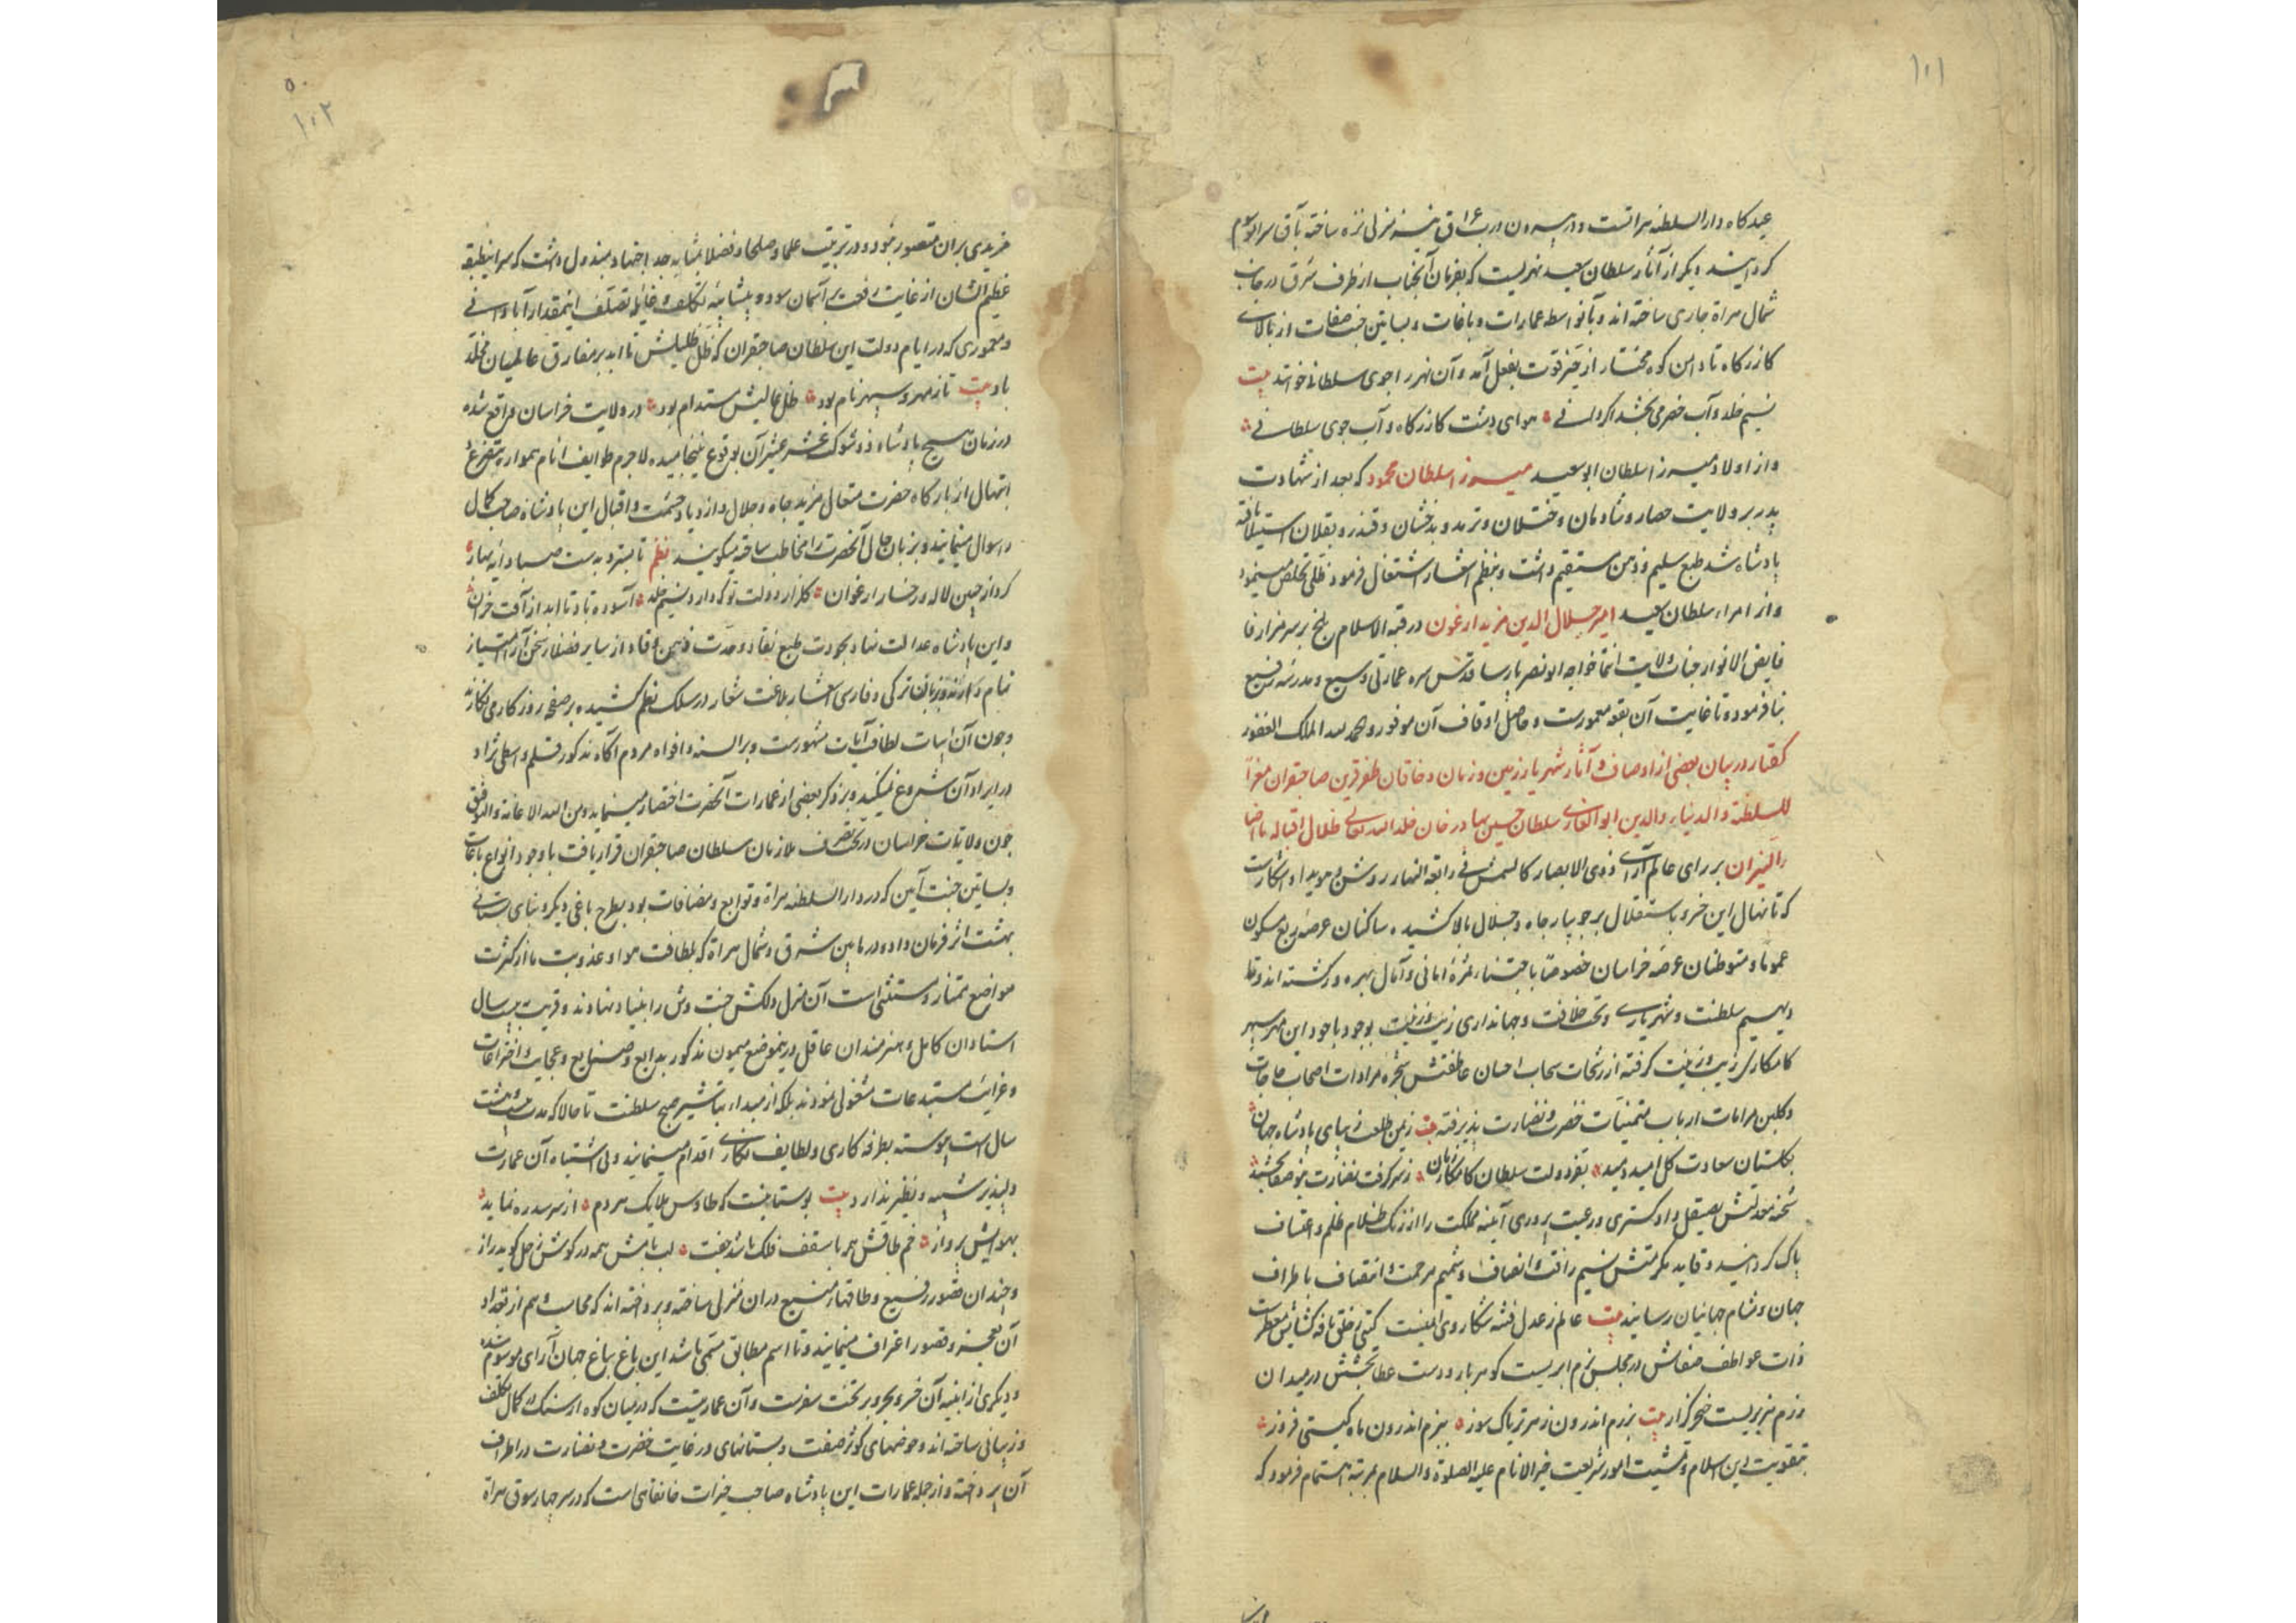 ۱۰۱
عیدکاه دار السلطنه هراتست و در بیرون درب عراق نیز منزلی نزه ساخته بآق سرای موسوم
کردانیدند دیکر از آثار سلطان سعید نهریست که بفرمان آنجناب از طرف شرق در جانب
شمال هراة جاری ساخته اند و بآنواسطه عمارات و باغات و بساتین جنت صفات از بالای
کازرکاه تا دامن کوه مختار از حیز قوت بفعل آمد و آن نهر را جوی سلطانی خوانند بیت
نسیم خلد و آب خضر می بخشد اکر دانی هوای دشت کازرکاه و آب جوی سلطانی
و از اولاد میرزا سلطان ابو سعید میرزا سلطان محمود که بعد از شهادت
پدر بر ولایت حصار و شادمان و ختلان و ترمد و بدخشان و قندز و بقلان استیلا یافته
پادشاه شد طبع سلیم و ذهن مستقیم داشت و بنظم اشعار اشتغال فرموده ظلی تخلص مینمود
و از امراء سلطان سعید امیر جلال الدین مزید ارغون در قبة الاسلام بلخ بر سر مزار فا
فایض الانوار جناب ولایت انتما خواجه ابو نصر پارسا قدس سره عمارتی وسیع و مدرسه رفیع
بنا فرموده و تا غایت آن بقعه معمورست و حاصل اوقاف آن موفور و الحمد لله الملک الغفور
کفتار در بیان بعضی از اوصاف و آثار شهریار زمین و زمان و خاقان ظفر قرین صاحبقران معز
للسلطنة و الدنیا و الدین ابو الغازی سلطان حسین بهادر خان خلد الله تعالی ظلال اقباله ما اضا
النیران بر رای عالم آرای ذوی الابصار کالشمس فی رابعة النهار روشن و هویدا و آشکارست
که تا نهال این خسرو با استقلال بر جویبار جاه و جلال بالا کشیده ساکنان عرصه ربع مسکون
عموما و متوطنان عرصه خراسان خصوصا باجتناء ثمره امانی و آمال بهره ور کشته اند و تا
دیهیم سلطنت و شهریاری و تخت خلافت و جهانداری زیب و زینت بوجود باجود این مهر سپهر
کامکاری زیب و زینت کرفته از رشحات سحاب احسان عاطفتش شجره مرادات اصحاب حاجات
و کلبن مرامات ارباب متمنیات خضرت و نضارت پذیرفته بیت زمین طلعت زیبای پادشاه جهان
بکلستان سعادت کل امید دمید بفر دولت سلطان کامکار زمان ز سر کرفت نضارت
شحنه معدلتش بصیقل دادکستری و رعیت پروری آئینه مملکت را از زنک ظلام ظلم و اعتساف
پاک کردانید و قاید مکرمتش نسیم رافت و انصاف و شمیم مرحمت و انتصاف باطراف
جهان و مشام جهانیان رسانید بیت عالم ز عدل فتنه شکار وی ایمنست کیتی ز خلق نافه کشایش معطرست
ذات عواطف صفاتش در مجلس بزم ابریست کوهر بار و دست عطا بخشش در میدان
رزم هزبریست خنجر کزار بیت برزم اندرون زهر تریاک سوز ببزم اندرون ماه کیتی فروز
بتقویت دین اسلام و تمشیت امور شریعت خیر الانام علیه الصلوة و السلام بمرتبه اهتمام فرموده که
۵۰
۱۰۲
مزیدی بران متصور نبود و در تربیت علما و صلحا و فضلا بمثابه جد و اجتهاد مبذول داشت که سر اینطبقه
عظیم الشان از غایت رفعت بر آسمان سود و بیشایبه تکلف و غایله تصلف اینمقدار آبادانی
و معموری که در ایام دولت این سلطان صاحبقران که ظل ظلیلش تا ابد بر مفارق عالمیان مخلد
باد بیت تا ز مهر و سپهر نام بود ظل عالیش مستدام بود در ولایت خراسان واقع شده
در زمان هیچ پادشاه ذو شوکت عشر عشیر آن بوقوع نینجامیده لاجرم طوایف انام همواره بتضرع
ابتهال از بارکاه حضرت متعال مزید جاه و جلال و ازدیاد حشمت و اقبال این پادشاه صاحب کمال
را سوال مینمایند و بزبان حال آنحضرت را مخاطب ساخته میکویند نظم تا بسترد بدست صبا دایه بهار
کرد از جبین لاله و رخسار ارغوان کلزار دولت تو که دارد نسیم خلد آسوده باد تا ابد از آفت خزان
و این پادشاه عدالت نهاد بجودت طبع نقاد و حدت ذهن وقاد از سایر فضلاء سخن آرا امتیاز
تمام دارند و بزبان ترکی و فارسی اشعار بلاغت شعار در سلک نظم کشیده بر صفحه روزکار می نکارند
و چون آن ابیات لطافت آیات مشهورست و بر السنه و افواه مردم آکاه مذکور قلم واسطی نژاد
در ایراد آن شروع نمیکند و بذکر بعضی از عمارات آنحضرت اختصار مینماید و من الله الاعانه و التوفیق
چون ولایات خراسان در تحت تصرف ملازمان سلطان صاحبقران قرار یافت با وجود انواع باغات
و بساتین جنت آیین که در دار السلطنه هراة و توابع و مضافات بود بطرح باغی دیکر و بنای بستانی
بهشت اثر فرمان داد و در مابین شرق و شمال هراة که بلطافت هوا و عذوبت ما از کثرت
مواضع ممتاز و مستثنی است آن منزل دلکش جنت وش را بنیاد نهادند و قریب بیست سال
استادان کامل و هنرمندان عاقل در ینموضع میمون مذکور ببدایع و صنایع و عجایب و اختراعات
و غرایب مستبدعات مشغولی نمودند بلکه از مبداء تباشیر صبح سلطنت تا حالا که مدت بیست و هشت
سال است پیوسته بطرفه کاری و لطایف نکاری اقدام مینمایند و بی اشتباه آن عمارت
دلپذیر شبیه و نظیر ندارد بیت بوستانیست که طاوس ملایک هر دم از سر سدره نماید
بهوایش پرواز خم طاقش همه با سقف فلک باشد جفت لب بامش همه در کوش زحل کوید راز
و چندان قصور رفیع و طاقهاء منیع در ان منزل ساخته و پرداخته اند که محاسب وهم از تعداد
آن بعجز و قصور اعتراف مینماید و تا اسم مطابق مسمی باشد این باغ بباغ جهان آرای موسوم شده
و دیکری از ابنیه آن خسرو بحر و بر تخت سفرست و آن عمارتیست که در میان کوه از سنک در کمال تکلف
و زیبائی ساخته اند و حوضهای کوثر صفت و بستانهای در غایت خضرت و نضارت در اطراف
آن پرداخته و از جمله عمارات این پادشاه صاحب خیرات خانقاهی است که در سر چهارسوق هراة